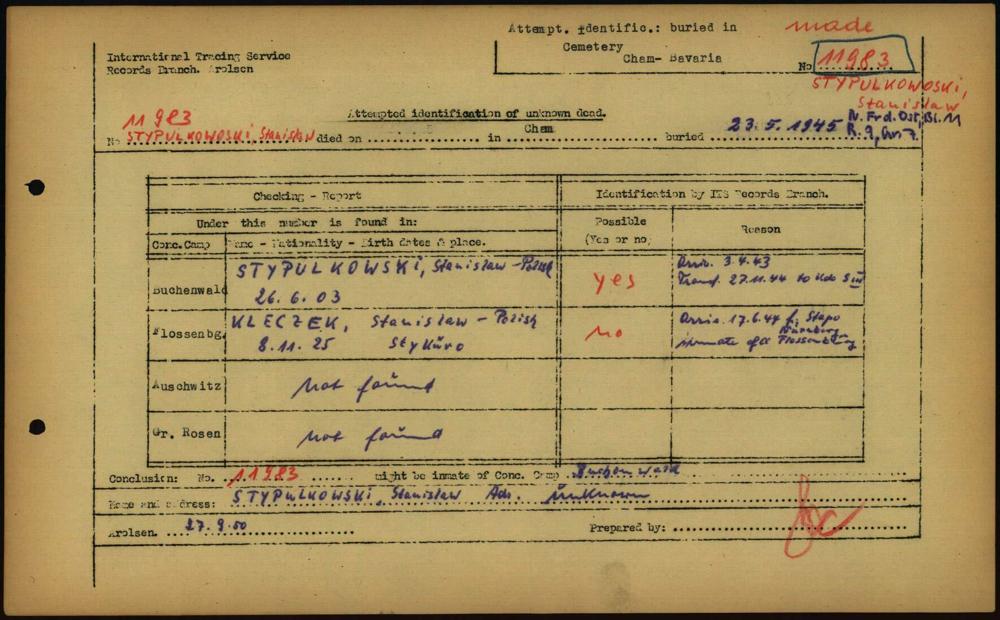 Attempt. identific.: buried in made
Cemetery
Cham- Bavaria No 11983
International Tracing Service
Records Branch. Arolsen
STYPULKOWOSKI,
Stanislaw
Attempted identification of unknown dead.
N. Frd. Ost, Bl. 11
11983
No STYPULKOWOSKI, Stanislaw died on in Cham buried 23.5.1945 R. 9,
Checking - Report Identification by ITS Records Branch.
Under this number is found in: Possible Reason
Conc.Camp Name - Nationality - Birth dates & place. (Yes or no)
Buchenwald STYPULKOWSKI, Stanislaw - Polish yes Arriv. 3.4.43
26.6.03 Transf. 27.11.44 to Kdo S III
Flossenbg. KLECZEK, Stanislaw - Polish no Arriv. 17.6.44 f. Stapo
Nürnberg
8.11.25 inmate of CC Flossenburg
Auschwitz not found
Gr. Rosen not found
Conclusion: No. 11983 might be inmate of Conc. Camp Buchenwald
Name and address: STYPULKOWSKI, Stanislaw Adr. unknown
Arolsen. 27.9.50 Prepared by: